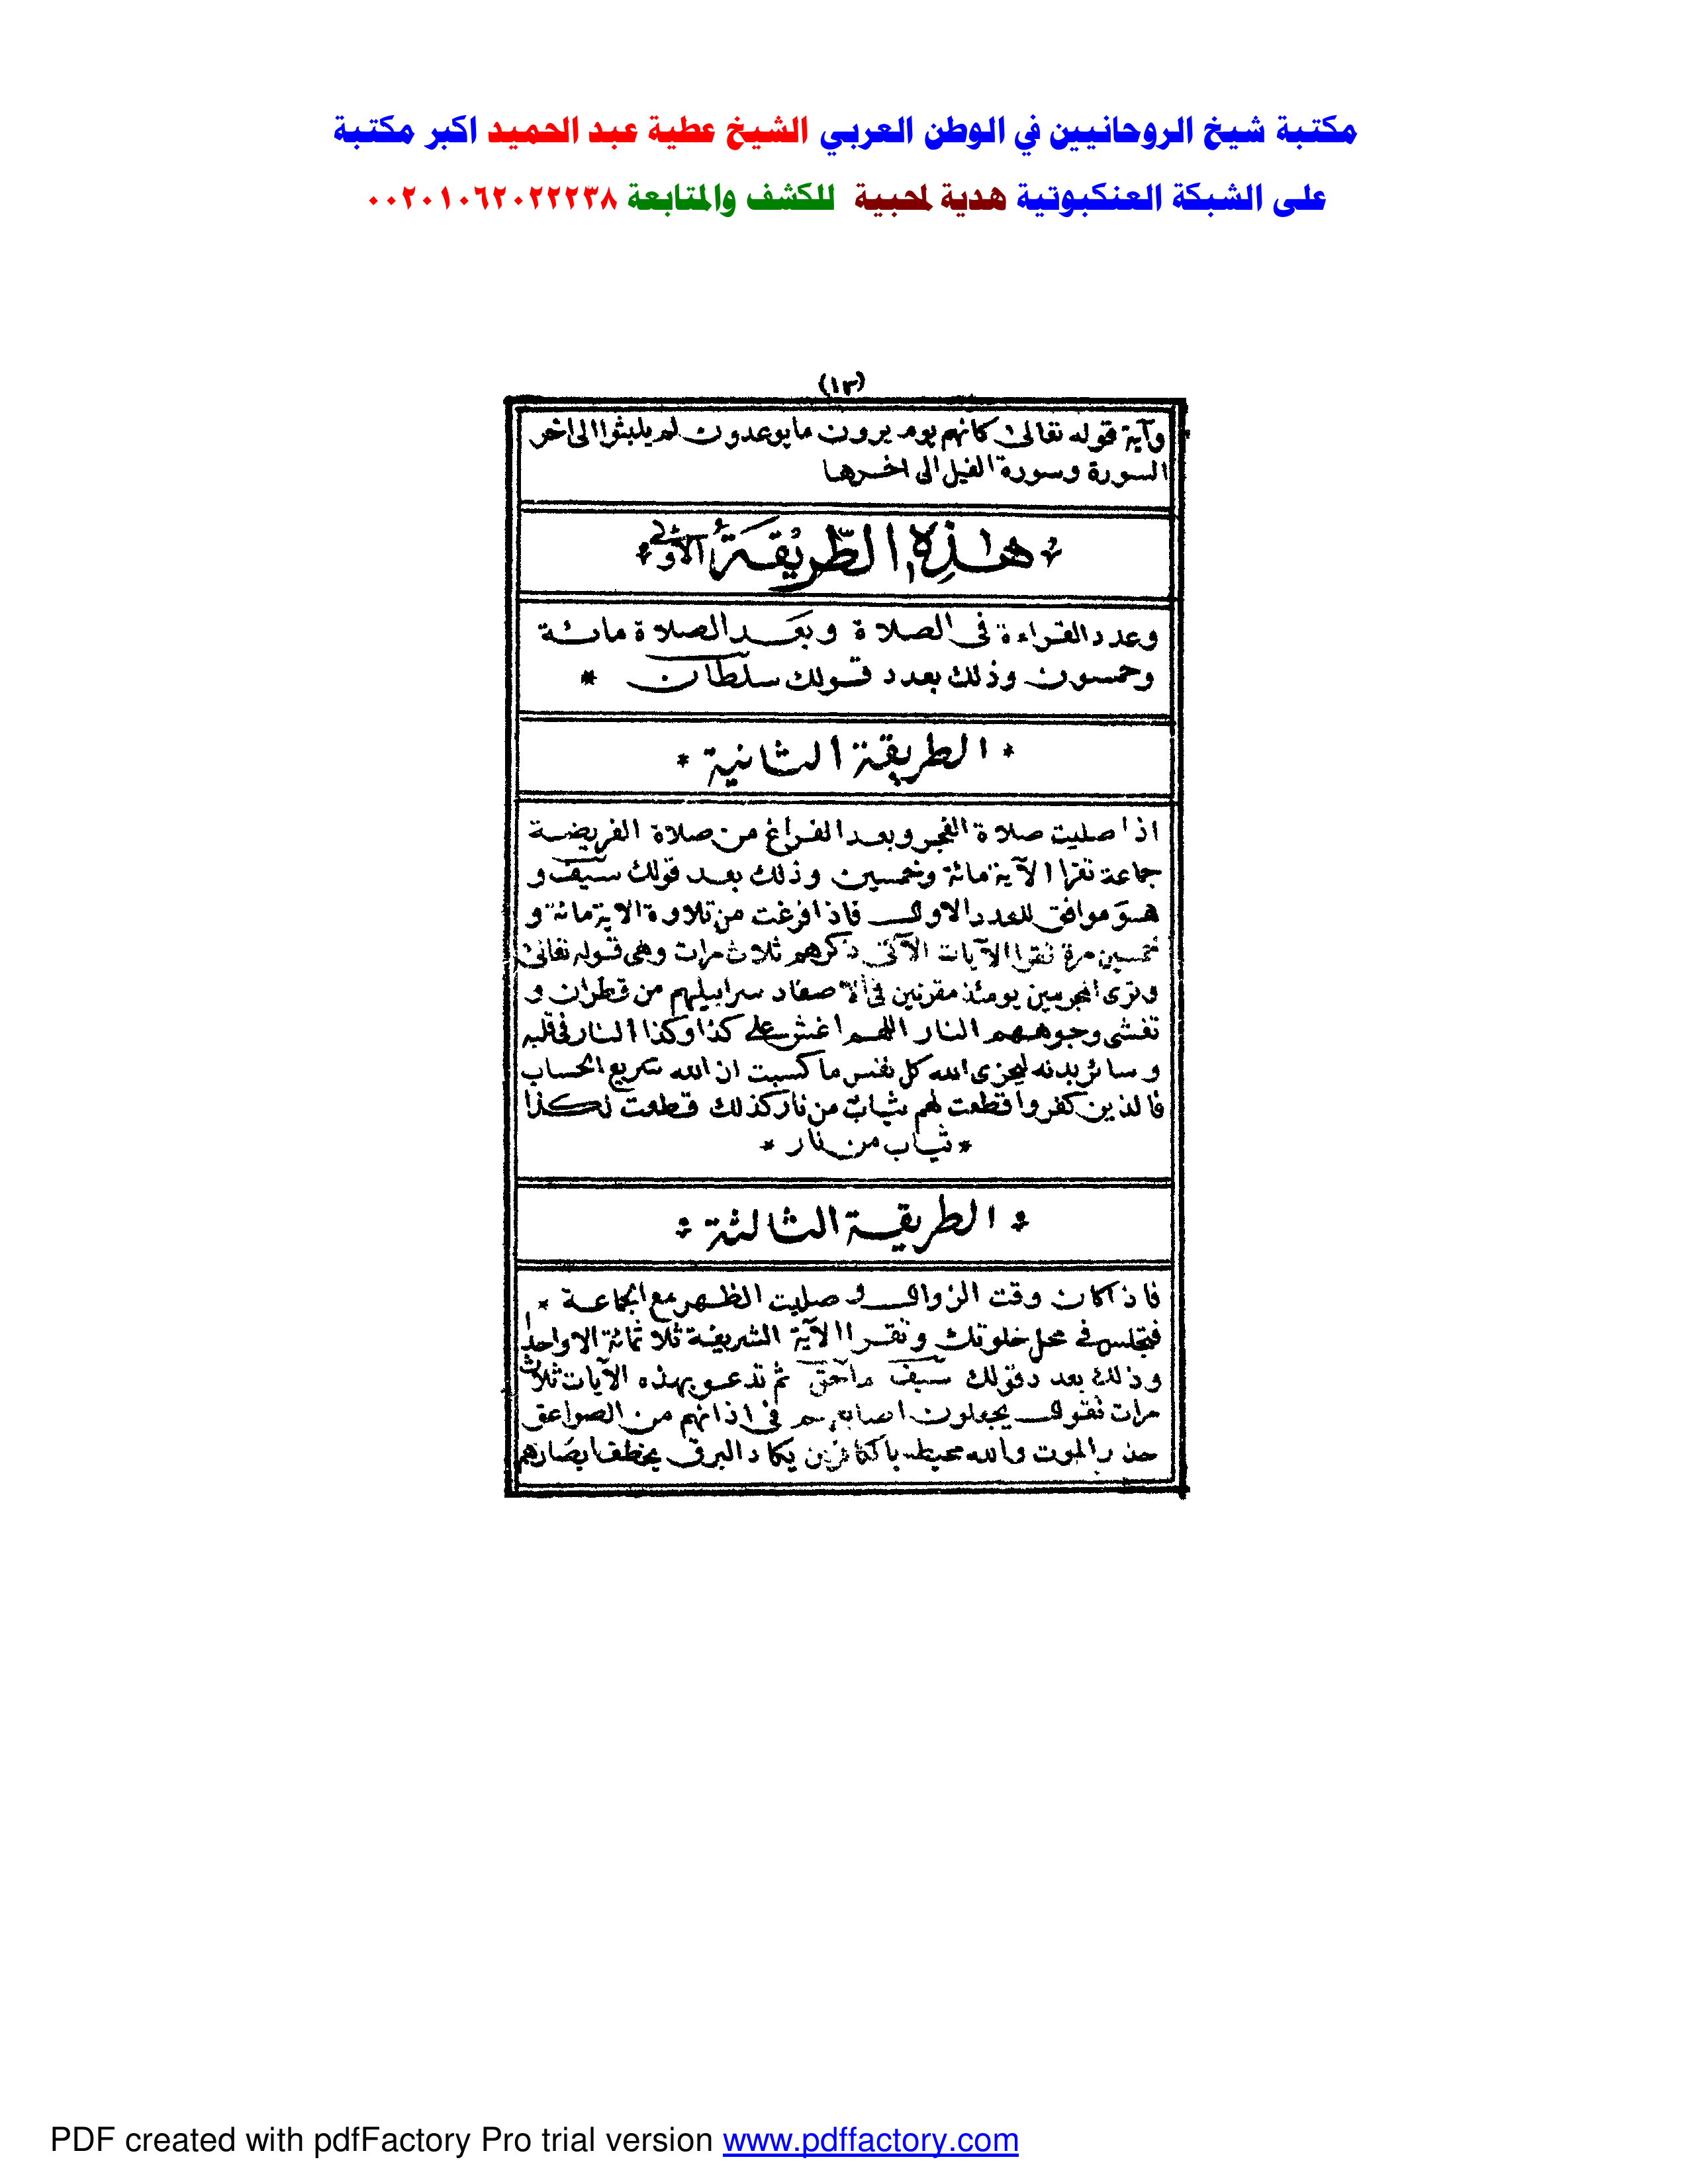 مكتبة شيخ الروحانيين في الوطن العربي الشيخ عطية عبد الحميد اكبر مكتبة
على الشبكة العنكبوتية هدية لمحبية للكشف والمتابعة ٠٠٢٠١٠٦٢٠٢٢٢٣٨
(١٣)
وآية قوله تعالى كانهم يوم يرون ما يوعدون لم يلبثوا الى اخر
السورة وسورة الفيل الى اخرها
هذه الطريقة الاولى
وعدد القراءة فى الصلاة وبعد الصلاة مائة
وخمسون وذلك بعدد قولك سلطان *
* الطريقة الثانية *
اذا صليت صلاة الفجر وبعد الفراغ من صلاة الفريضة
جماعة تقرا الآية مائة وخمسين وذلك بعد قولك سيف و
هو موافق للعدد الاول فاذا فرغت من تلاوة الاية مائة و
خمسين مرة تقرا الآيات الآتى ذكرهم ثلاث مرات وهى قوله تعالى
وترى المجرمين يومئذ مقرنين فى الاصفاد سرابيلهم من قطران و
تغشى وجوههم النار اللهم اغش على كذا وكذا النار فى قلبه
وسائر بدنه ليجزى الله كل نفس ما كسبت ان الله سريع الحساب
فالذين كفروا قطعت لهم ثياب من نار كذلك قطعت لكذا
* ثياب من نار *
الطريقة الثالثة
فاذا كان وقت الزوال و صليت الظهر مع الجماعة *
فتجلس فى محل خلوتك وتقرا الآية الشريفة ثلاثمائة الاواحد
وذلك بعد دقولك سيف ماحق ثم تدعو بهذه الآيات ثلاث
مرات تقول يجعلون اصابعهم فى اذانهم من الصواعق
حذر الموت والله محيط بالكافرين يكاد البرق يخطف ابصارهم
PDF created with pdfFactory Pro trial version www.pdffactory.com